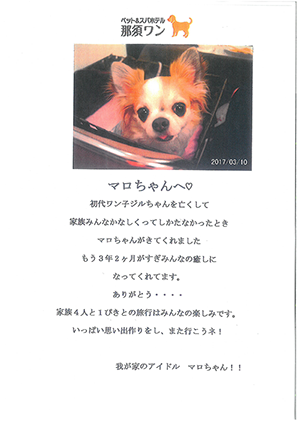 ペット&スパホテル
那須ワン
2017/03/10
マロちゃんへ♡
初代ワン子ジルちゃんを亡くして
家族みんなかなしくってしかたなかったとき
マロちゃんがきてくれました
もう3年2ヶ月がすぎみんなの癒しに
なってくれてます。
ありがとう・・・・
家族4人と1ぴきとの旅行はみんなの楽しみです。
いっぱい思い出作りをし、また行こうネ！
我が家のアイドル マロちゃん！！